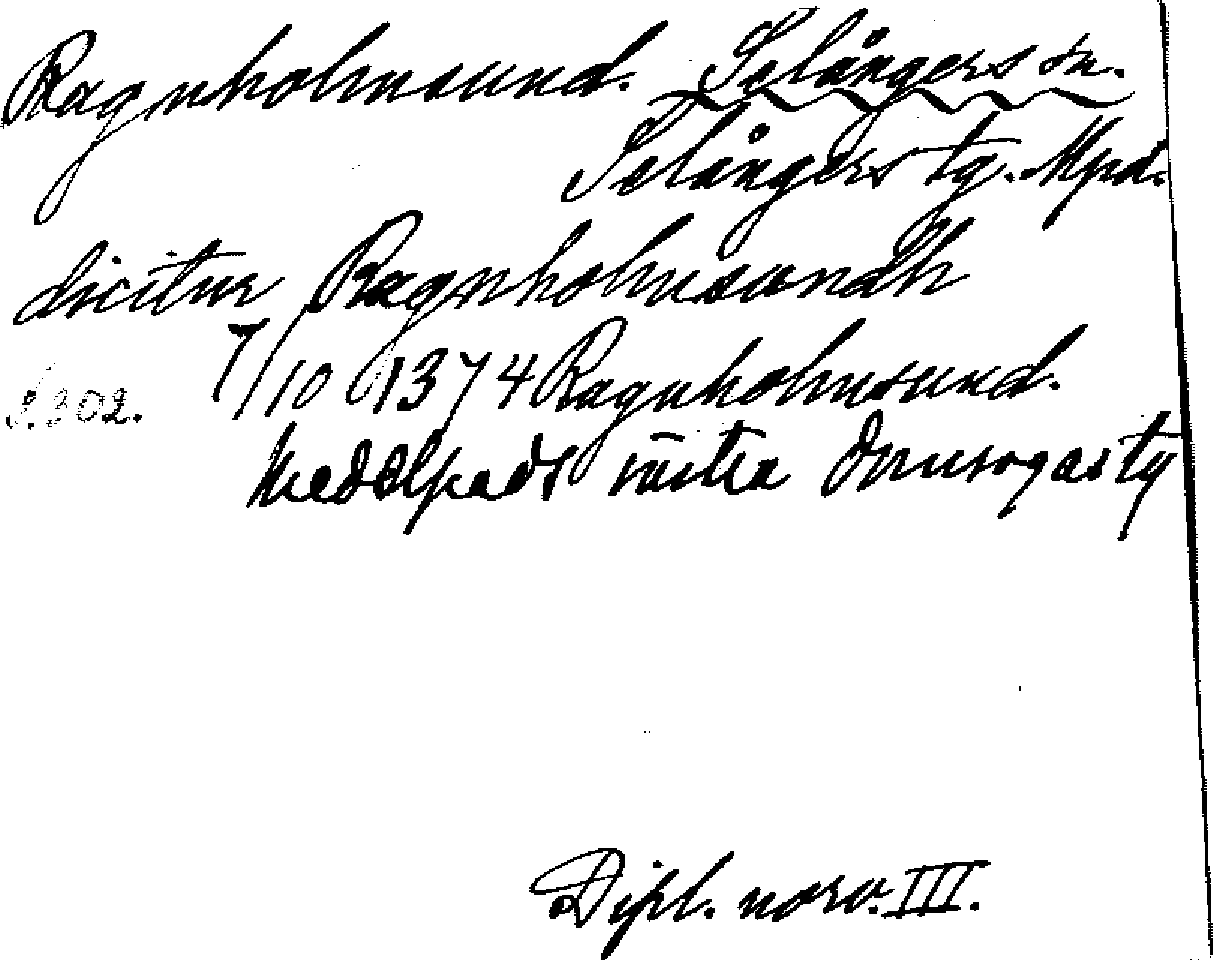 Ragnholmsund. Selångers sn.
Selångers tg. Mpd.
dicitur Ragnholmsundh
7/10 1374 Ragnholmsund.
S. 302.
Medelpads västra domsagas tg
Dipl. norv. III.